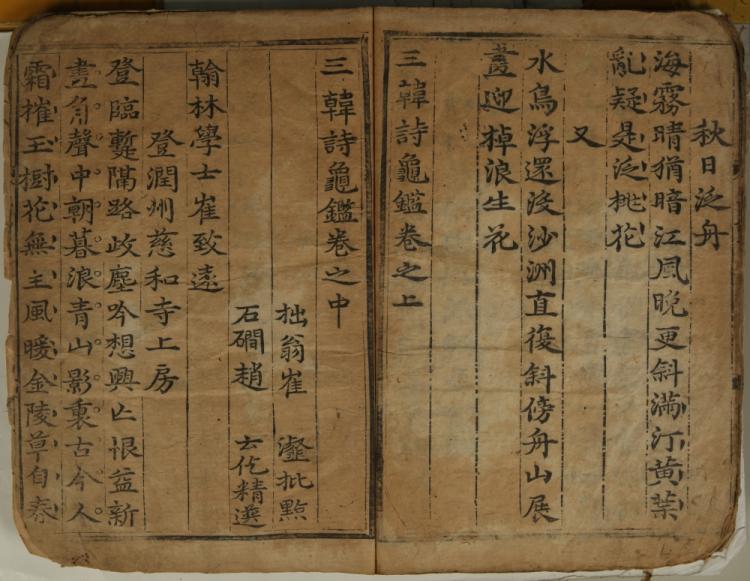 秋日泛舟
海霧晴猶暗江風晚更斜滿汀黃葉
亂疑是泛桃花
又
水鳥浮還沒沙洲直復斜傍舟山展
畫迎棹浪生花
三韓詩龜鑑卷之上
三韓詩龜鑑卷之中
拙翁崔 瀣批點
石磵趙 云仡精選
翰林學士崔致遠
登潤州慈和寺上房
登臨蹔隔路歧塵吟想興亡恨益新
畫角聲中朝暮浪青山影裏古今人
霜摧玉樹花無主風暖金陵草自春